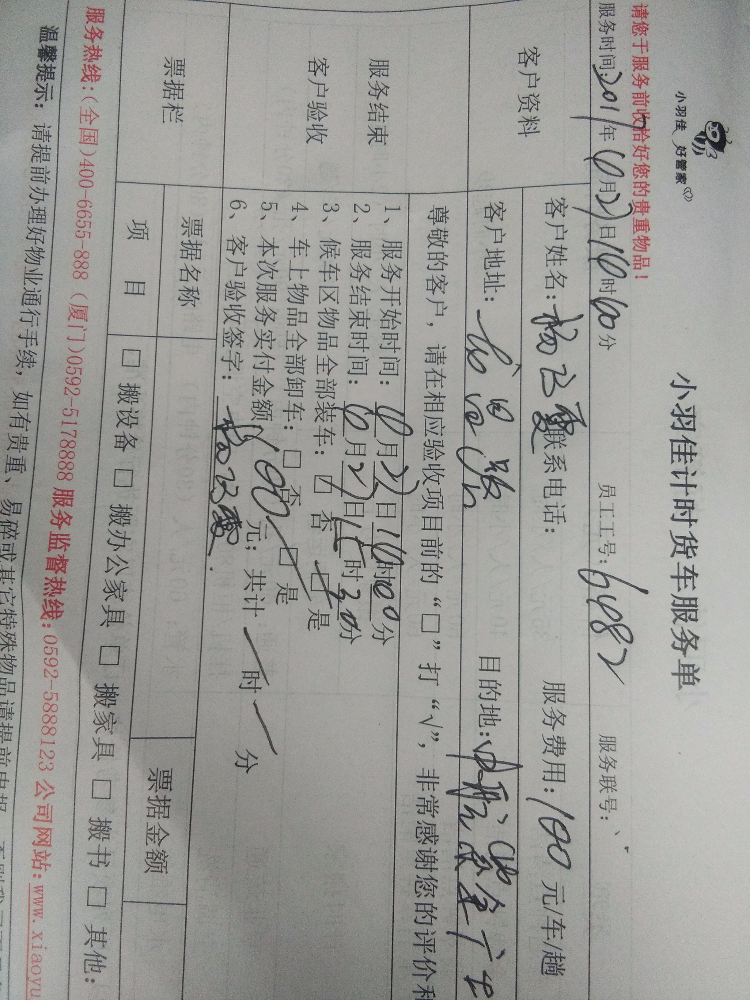 小羽佳 好管家
小羽佳计时货车服务单
请您于服务前收拾好您的贵重物品!
服务时间:2017年6月27日14时00分 员工工号:6482 服务联号:
客户资料
客户姓名: 联系电话: 服务费用:100元/车/趟
客户地址: 目的地:
尊敬的客户,请在相应验收项目前的“□”打“√”,非常感谢您的评价和
服务结束
客户验收
1、服务开始时间:6月27日14时00分
2、服务结束时间:6月27日15时30分
3、候车区物品全部装车:□否 □是
4、车上物品全部卸车:□否 □是
5、本次服务实付金额100元;共计 时 分
6、客户验收签字:
票据栏
票据名称 票据金额
项 目 □ 搬设备 □ 搬办公家具 □ 搬家具 □ 搬书 □ 其他:
服务热线:(全国)400-6655-888 (厦门)0592-5178888 服务监督热线:0592-5888123 公司网站:www.xiaoyu
温馨提示:请提前办理好物业通行手续,如有贵重、易碎或其它特殊物品请提前申报,否则我司不